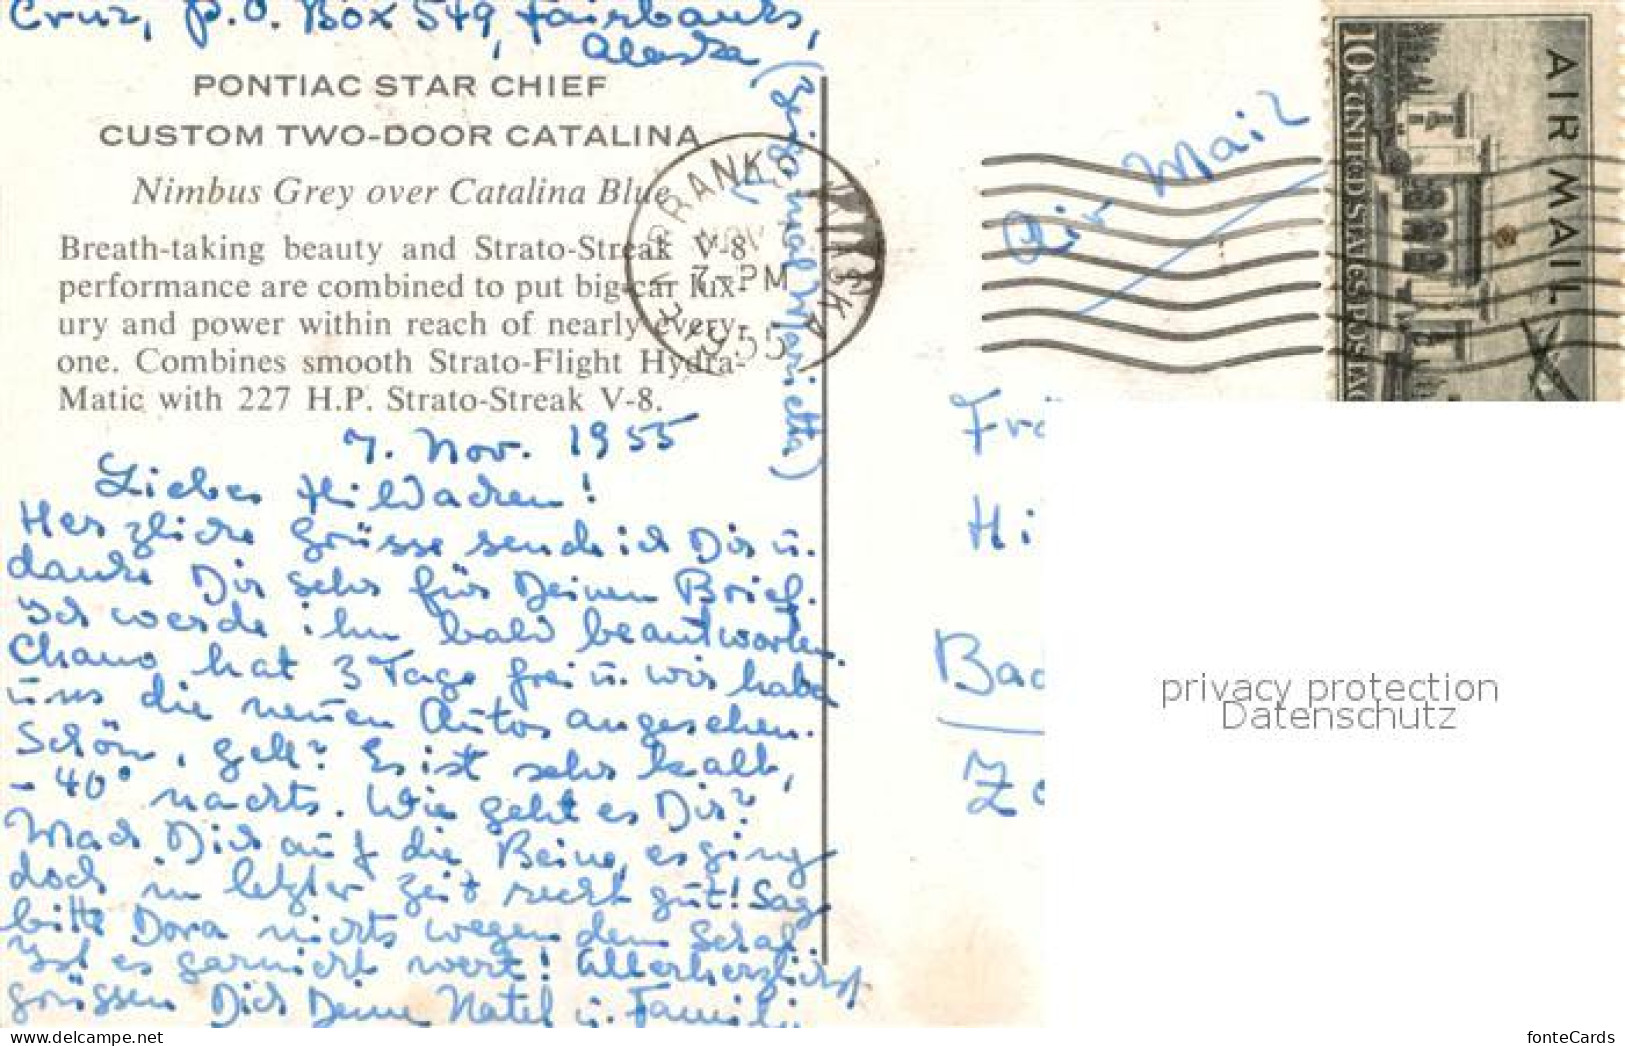 Cruz, P.O. Box 549, Fairbanks,
Alaska
PONTIAC STAR CHIEF
CUSTOM TWO-DOOR CATALINA
Nimbus Grey over Catalina Blue
Breath-taking beauty and Strato-Streak V-8
performance are combined to put big-car lux-
ury and power within reach of nearly every-
one. Combines smooth Strato-Flight Hydra-
Matic with 227 H.P. Strato-Streak V-8.
7. Nov. 1955
Liebes Hildachen!
Herzliche Grüsse sende ich Dir u.
danke Dir sehr für Deinen Brief.
Ich werde ihn bald beantworten.
Chano hat 3 Tage frei u. wir haben
uns die neuen Autos angesehen.
Schön, gell? Es ist sehr kalt,
-40° nachts. Wie geht es Dir?
Mach Dich auf die Beine, es ging
doch in letzter Zeit recht gut! Sage
bitte Dora nichts wegen dem Schal
Ist es garnicht wert! Allerherzlichst
grüssen Dich Deine Natel u. Famili
(Zeigs mal Marietta)
7-PM
55
Air Mail
AIR MAIL
10¢ UNITED STATES POSTAG
Frä
Hi
Bad
Z
privacy protection
Datenschutz
www.delcampe.net
fonteCards